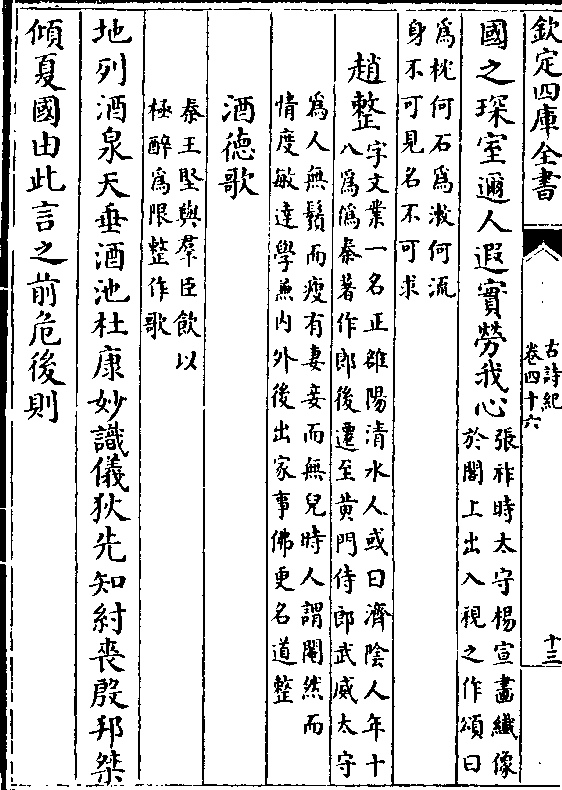 欽定四庫全書
古詩紀
卷四十六
十三
國之琛室邇人遐實勞我心
張祚時太守楊宣畫纖像
於閣上出入視之作頌曰
為枕何石為漱何流
身不可見名不可求
趙整
字文業一名正雒陽清水人或曰濟陰人年十
八為偽秦著作郎後遷至黄門侍郎武威太守
為人無鬚而瘦有妻妾而無兒時人謂閹然而
情度敏達學兼内外後出家事佛更名道整
酒德歌
秦王堅與羣臣飲以
極醉為限整作歌
地列酒泉天垂酒池杜康妙識儀狄先知紂喪殷邦桀
傾夏國由此言之前危後則